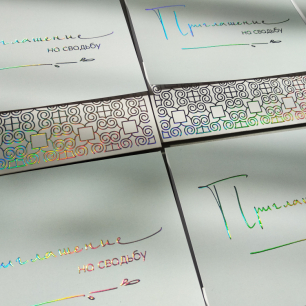 Приглашение
на свадьбу
Приглашение
на свадьбу
Приглашение
на свадьбу
Приглаш